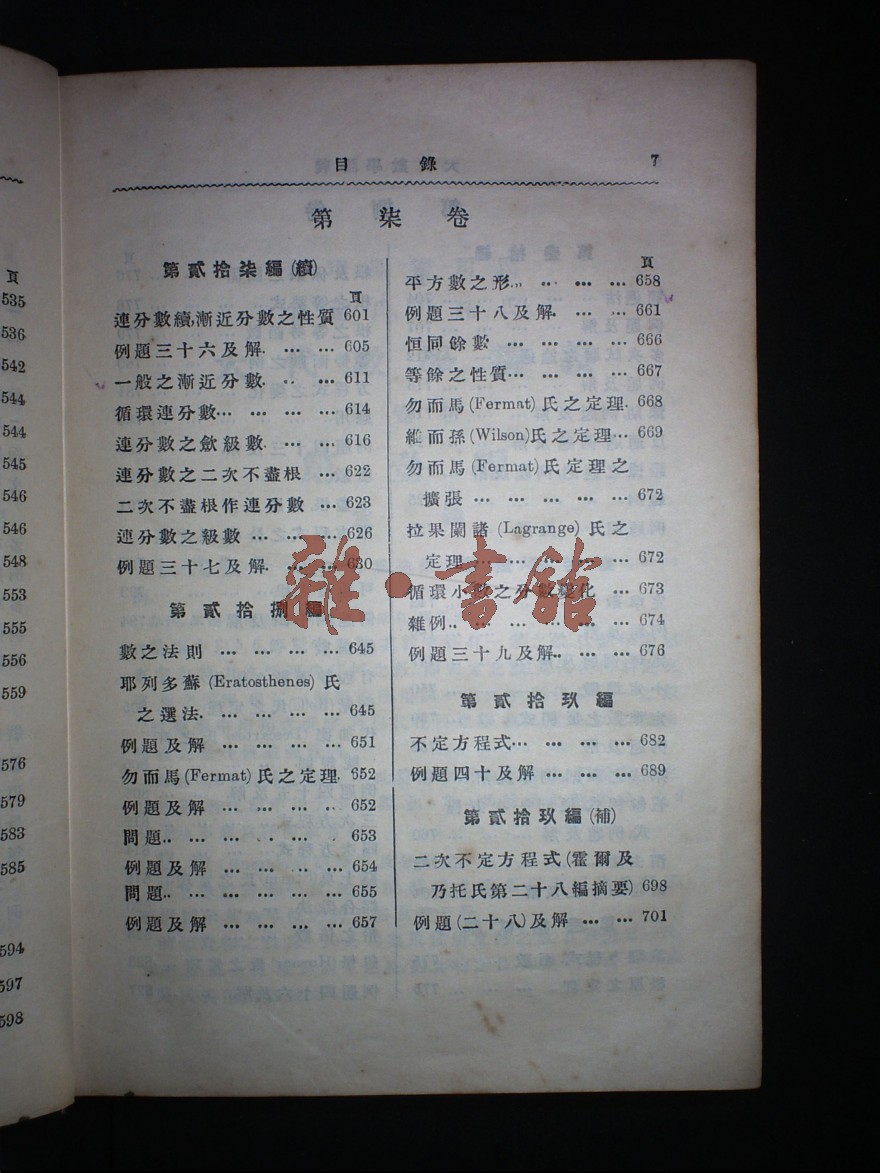 目錄 7
第柒卷
第貳拾柒編(續)
頁
連分數續,漸近分數之性質 601
例題三十六及解. … … 605
一般之漸近分數. … … 611
循環連分數… … … 614
連分數之斂級數. … … 616
連分數之二次不盡根 … 622
二次不盡根作連分數 … 623
連分數之級數 … … … 626
例題三十七及解. … … 630
第貳拾捌編
數之法則 … … … … 645
耶列多蘇 (Eratosthenes) 氏
之選法. … … … … 645
例題及解 … … … … 651
勿而馬 (Fermat) 氏之定理. 652
例題及解 … … … … 652
問題.. … … … … … 653
例題及解 … … … … 654
問題.. … … … … … 655
例題及解 … … … … 657
頁
平方數之形.. … … … 658
例題三十八及解. … … 661
恒同餘數 … … … … 666
等餘之性質… … … … 667
勿而馬 (Fermat) 氏之定理. 668
維而孫 (Wilson) 氏之定理… 669
勿而馬 (Fermat) 氏定理之
擴張 … … … … … 672
拉果闌諸 (Lagrange) 氏之
定理… … … … … 672
循環小數之分數變化 … 673
雜例.. … … … … … 674
例題三十九及解.. … … 676
第貳拾玖編
不定方程式… … … … 682
例題四十及解 … … … 689
第貳拾玖編(補)
二次不定方程式(霍爾及
乃托氏第二十八編摘要) 698
例題(二十八)及解 … … 701
頁
535
536
542
544
544
545
546
546
548
553
555
556
559
576
579
583
585
594
597
598
雜·書館